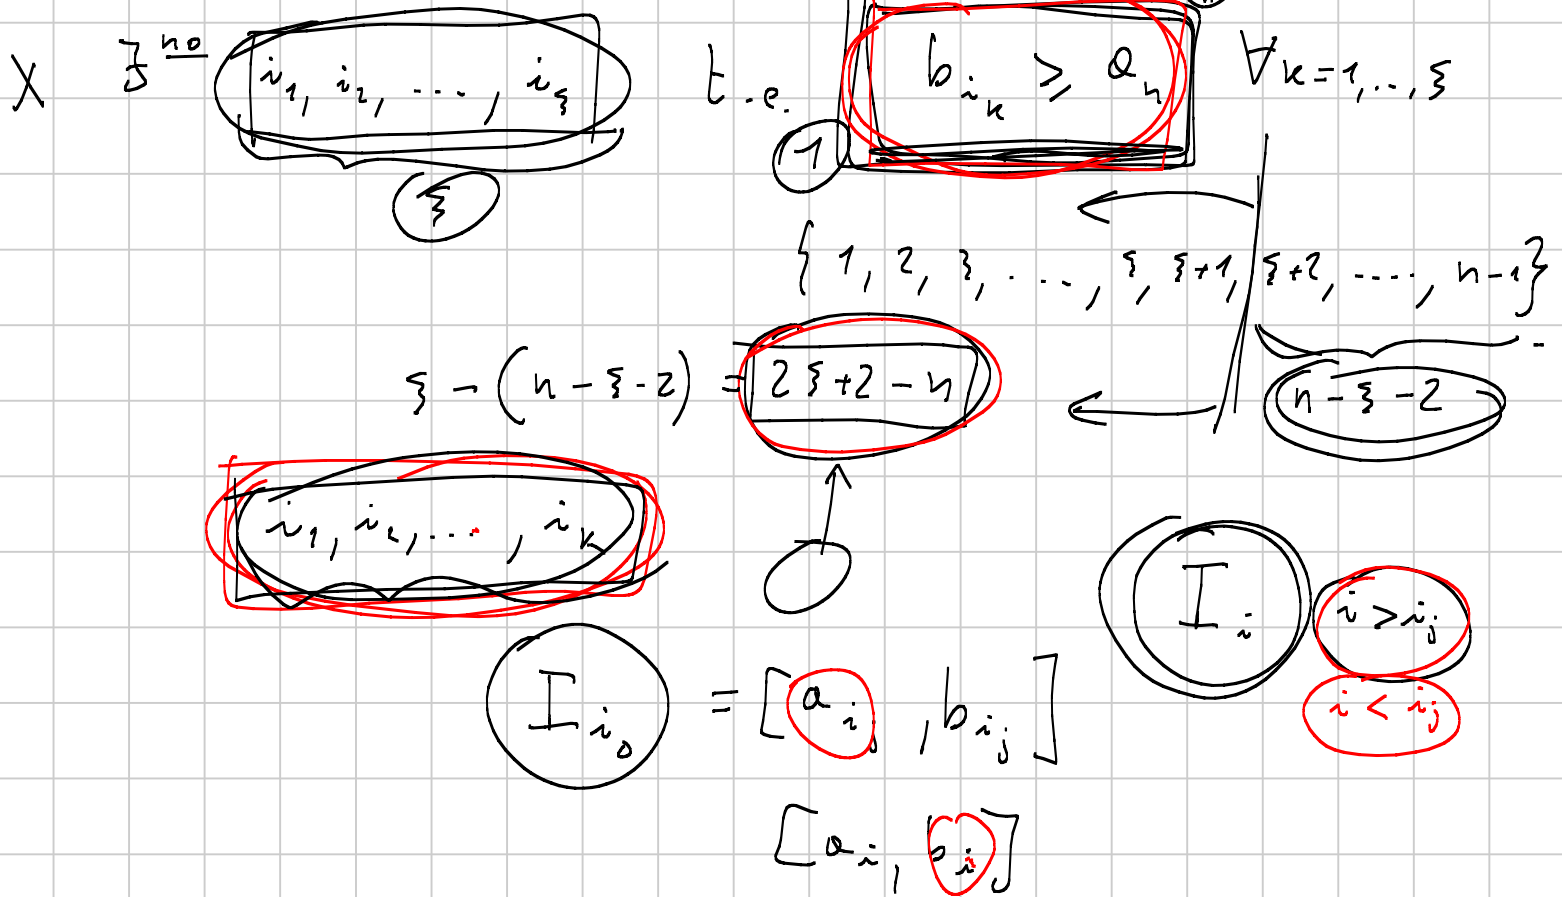 X ∃ no i₁, i₂, ..., i_ξ t.e. b_{i_k} ≥ a_n ∀ k=1,...,ξ
1
ξ
{1, 2, 3, ..., ξ, ξ+1, ξ+2, ...., n-1}
ξ - (n-ξ-2) = 2ξ+2-n n-ξ-2
i₁, i₂, ..., i_k
I_i i > i_j
I_{i_0} = [a_i, b_{i_j}] i < i_j
[a_i, b_i]